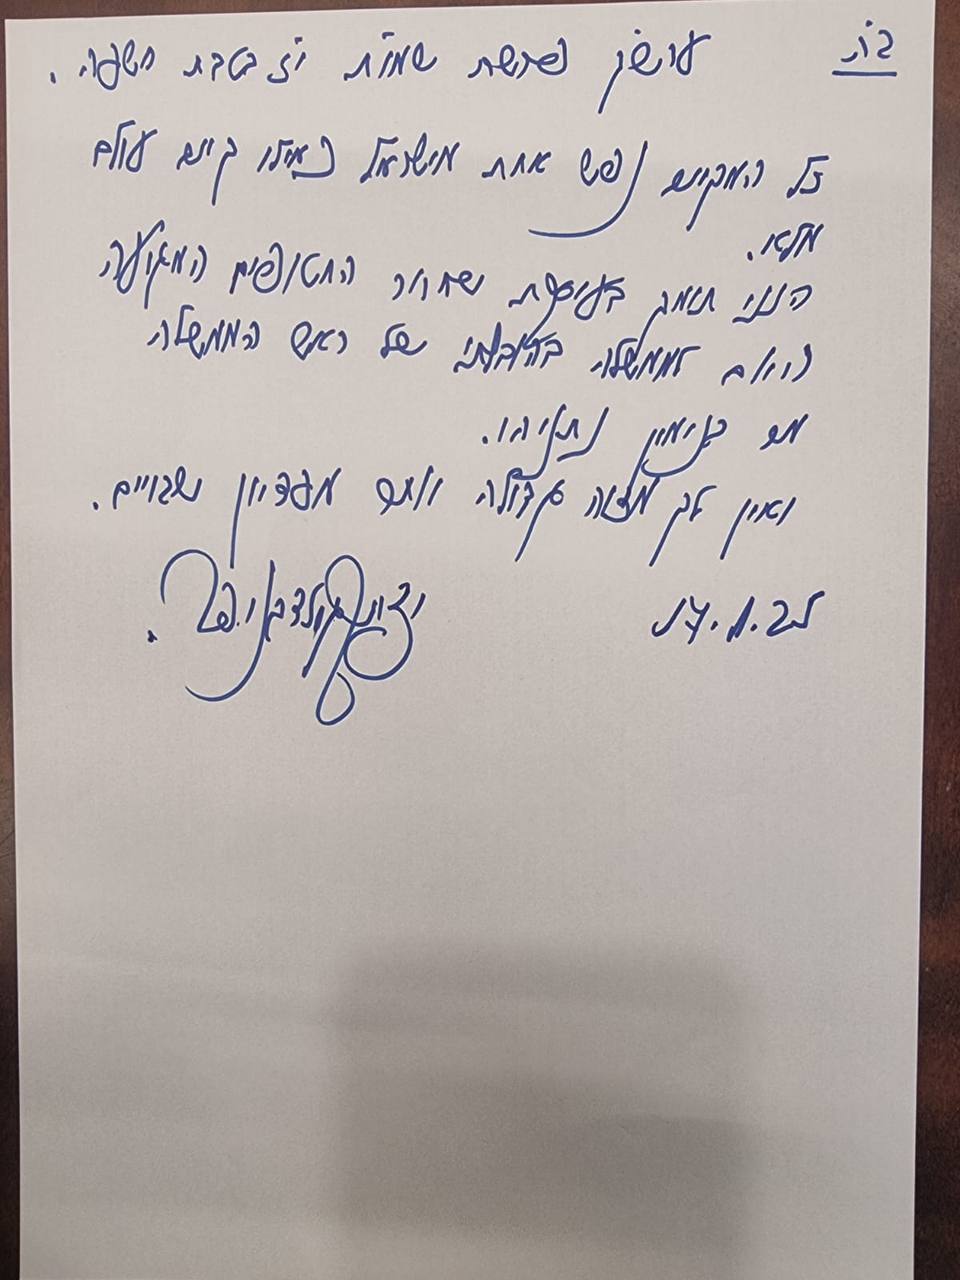 ב״ה
ערש״ק פרשת שמות י״ז בטבת תשפ״ה.
כל המקיים נפש אחת מישראל כאילו קיים עולם
מלא.
הנני תומך בעיסקת שחרור החטופים המגיעה
היום לממשלה בהובלתו של ראש הממשלה
מר בנימין נתניהו.
ואין לך מצוה גדולה יותר מפדיון שבויים.
יצחק גולדקנופף.